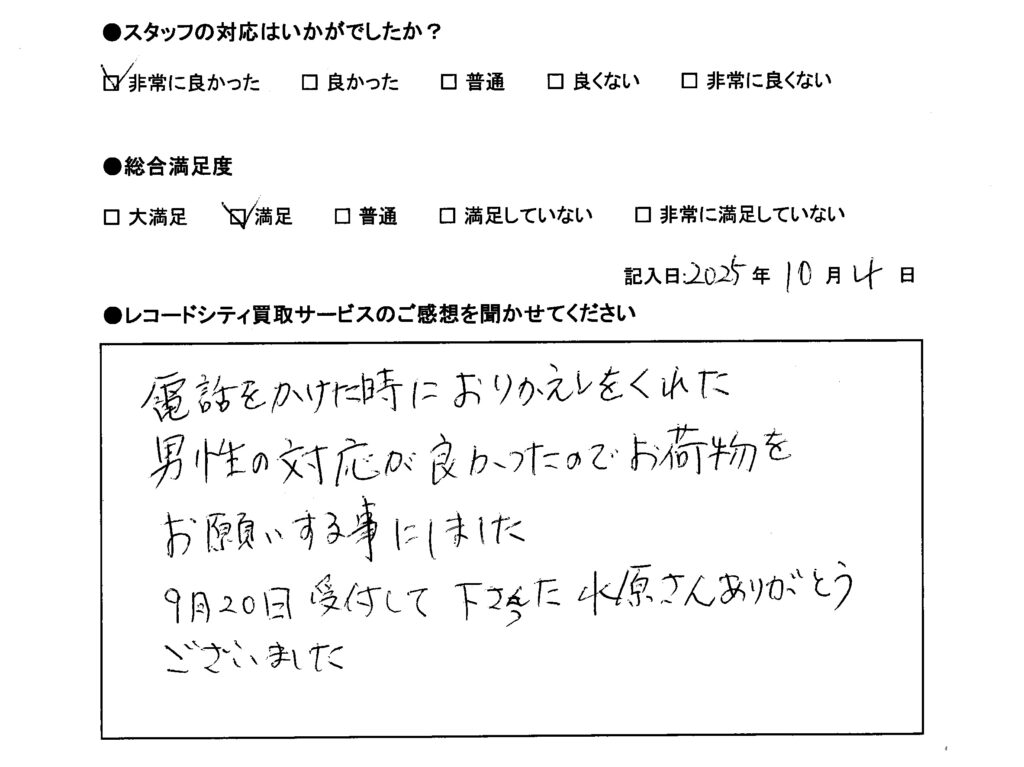 ●スタッフの対応はいかがでしたか？
☑ 非常に良かった □ 良かった □ 普通 □ 良くない □ 非常に良くない
●総合満足度
□ 大満足 ☑ 満足 □ 普通 □ 満足していない □ 非常に満足していない
記入日:2025 年 10 月 4 日
●レコードシティ買取サービスのご感想を聞かせてください
電話をかけた時におりかえしをくれた
男性の対応が良かったのでお荷物を
お願いする事にしました
9月20日受付して下さった水原さんありがとう
ございました